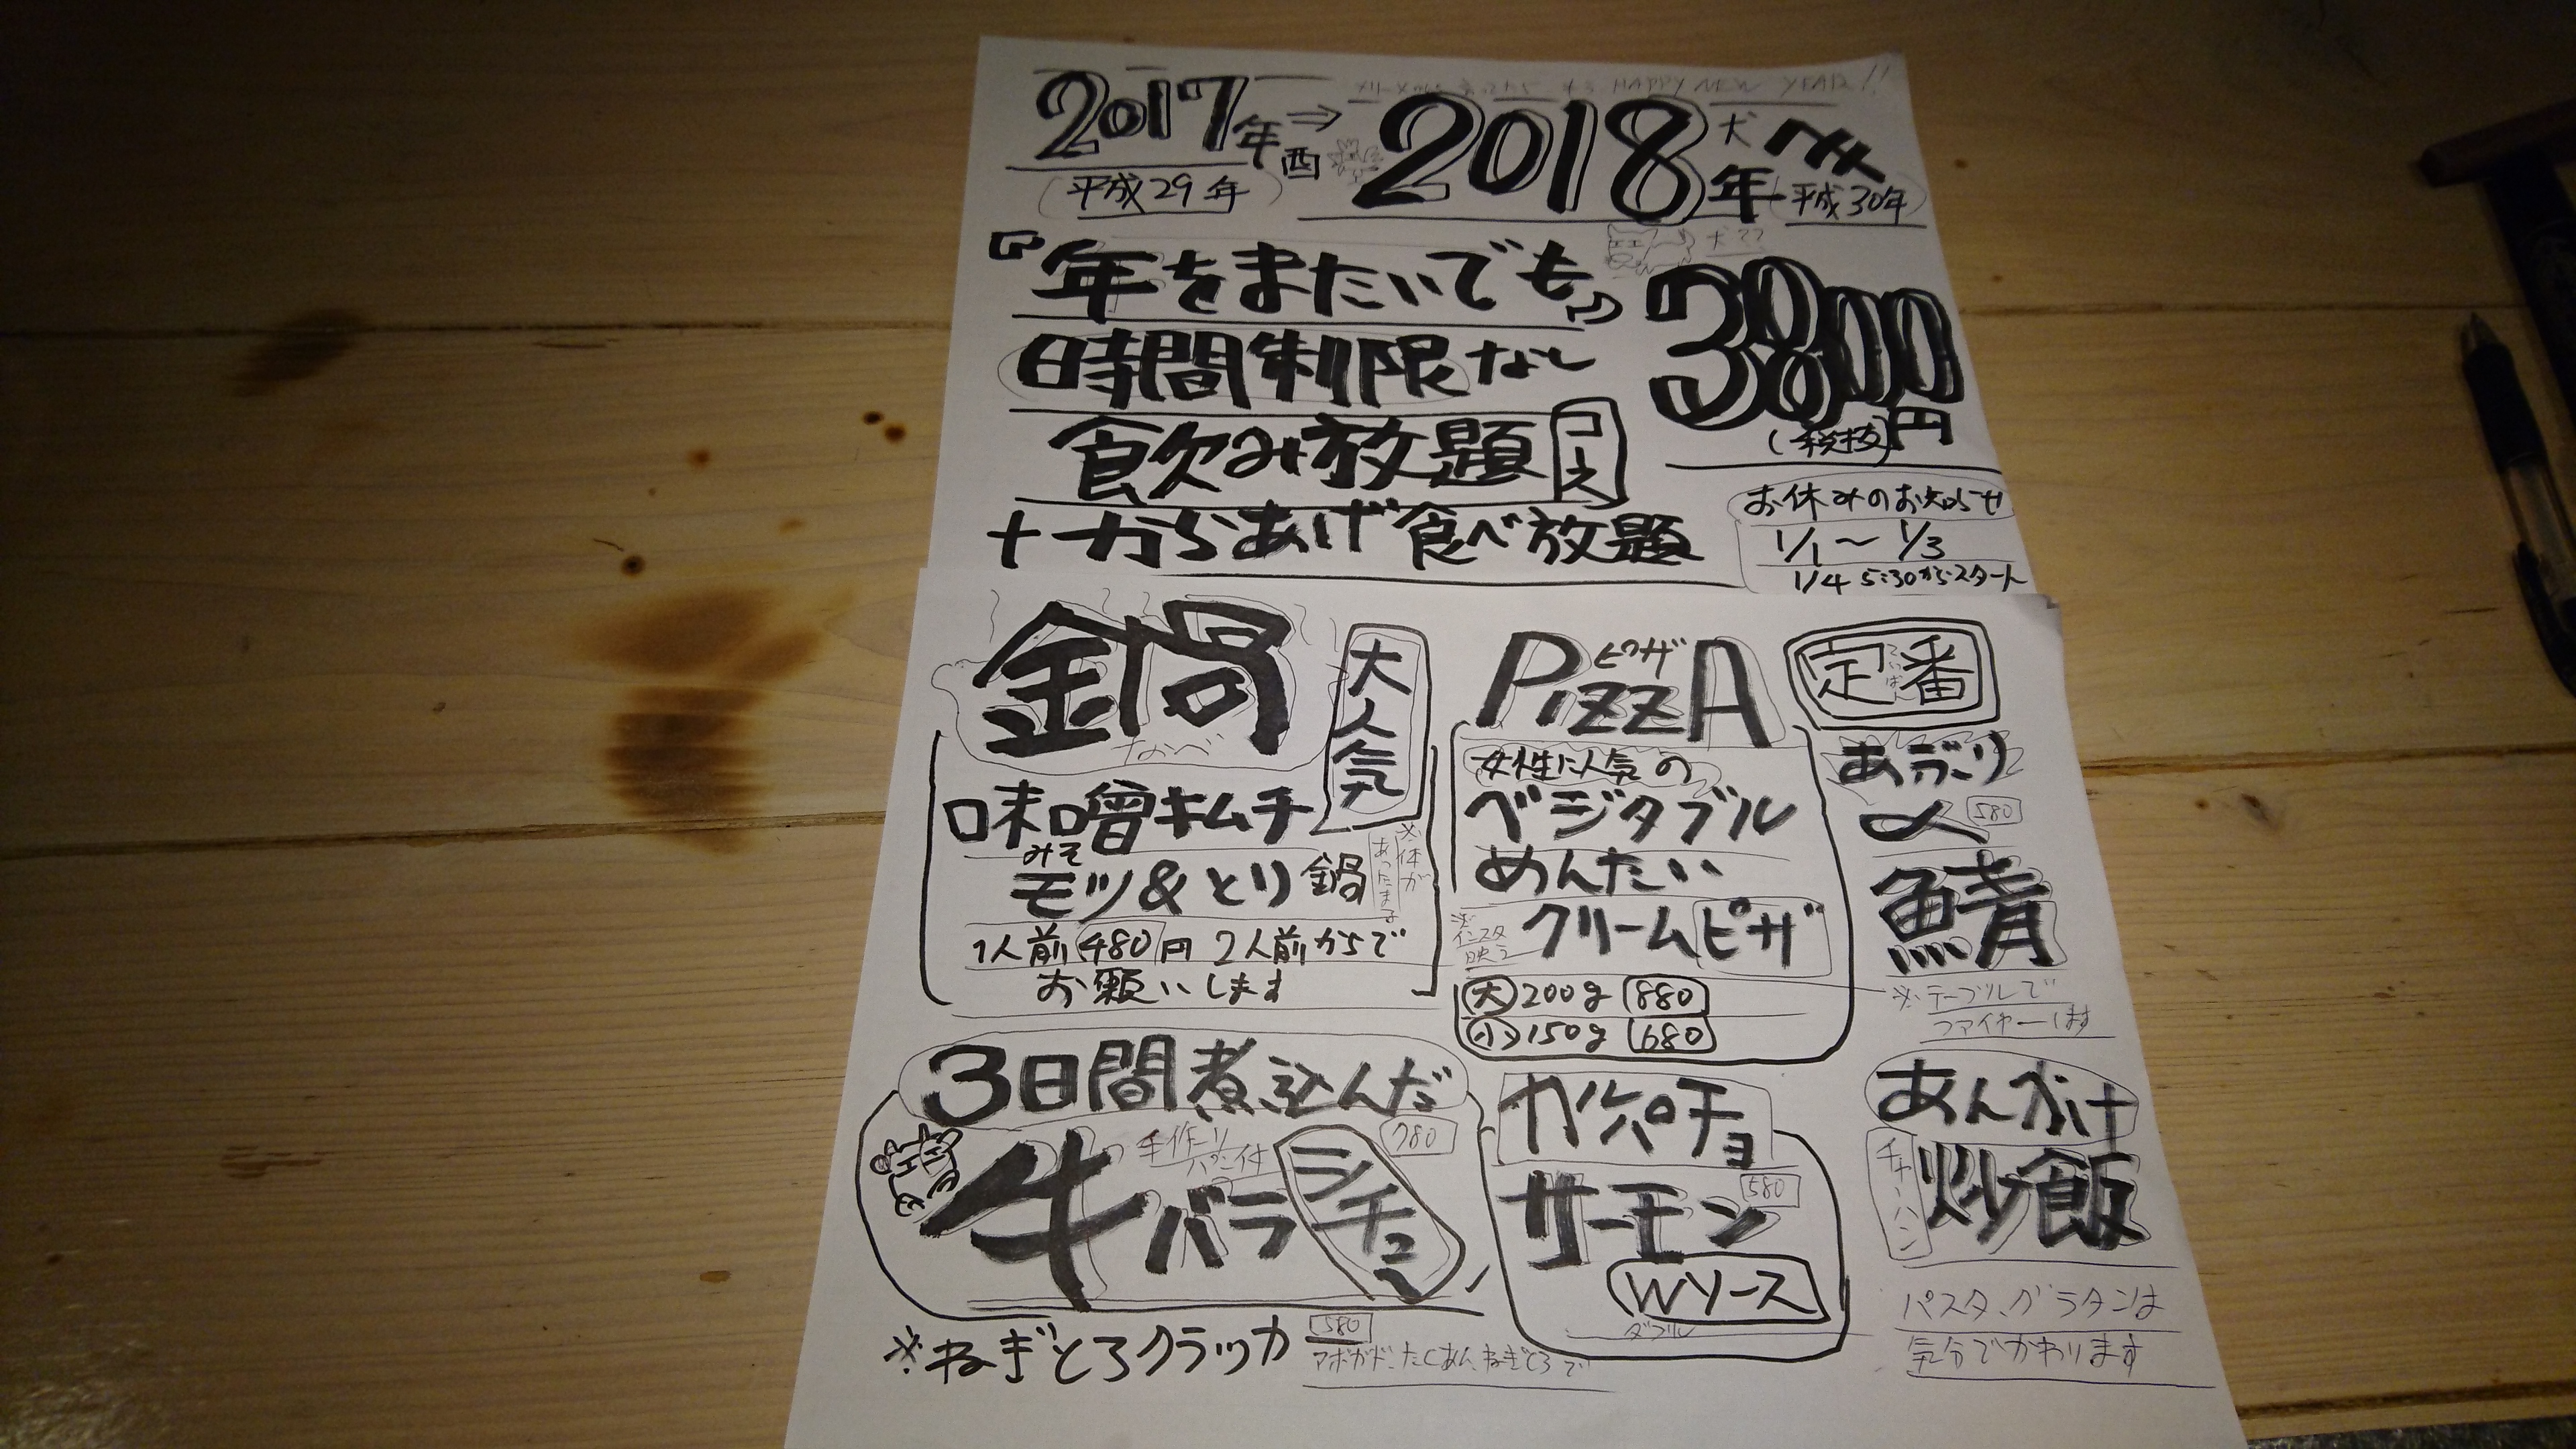 HAPPY NEW YEAR!!
2017年酉⇒2018年
犬
(平成29年)
平成30年
犬??
『年をまたいでも』
時間制限なし
飲み放題
コース
3800円
(税抜)
+からあげ食べ放題
お休みのお知らせ
1/1〜1/3
1/4 5:30からスタート
鍋
なべ
大人気
味噌キムチ
みそ
モツ&とり鍋
※体が
あったまる
1人前480円 2人前からで
お願いします
PIZZA
ピザ
女性に人気の
ベジタブル
めんたい
クリームピザ
※インスタ
映え
大 200g 880
小 150g 680
定番
ていばん
あぶり
〆 580
鯖
※テーブルで
ファイヤーします
3日間煮込んだ
780
手作り
パン付
牛バラシチュー
カルパッチョ
サーモン
580
Wソース
ダブル
あんかけ
炒飯
チャーハン
パスタ、グラタンは
気分でかわります
※ねぎとろクラッカ 580
アボガド、たくあん、ねぎとろで